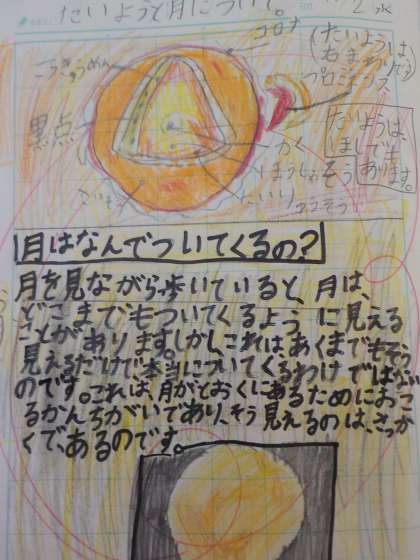 たいようと月について。
2 水
コロナ
(たいようは、
右まわりだよ)
プロミネンス
こうきゅうめん
黒点
たいようは、
ほしでも
あります。
かく
ほうしゃそう
たいりゅうそう
月はなんでついてくるの?
月を見ながら歩いていると、月は、
どこまでもついてくるように見える
ことがあります。しかし、これは、あくまでもそう
見えるだけで本当についてくるわけではない
のです。これは、月がとおくにあるためにおこ
るかんちがいであり、そう見えるのは、さっか
くで、あるのです。